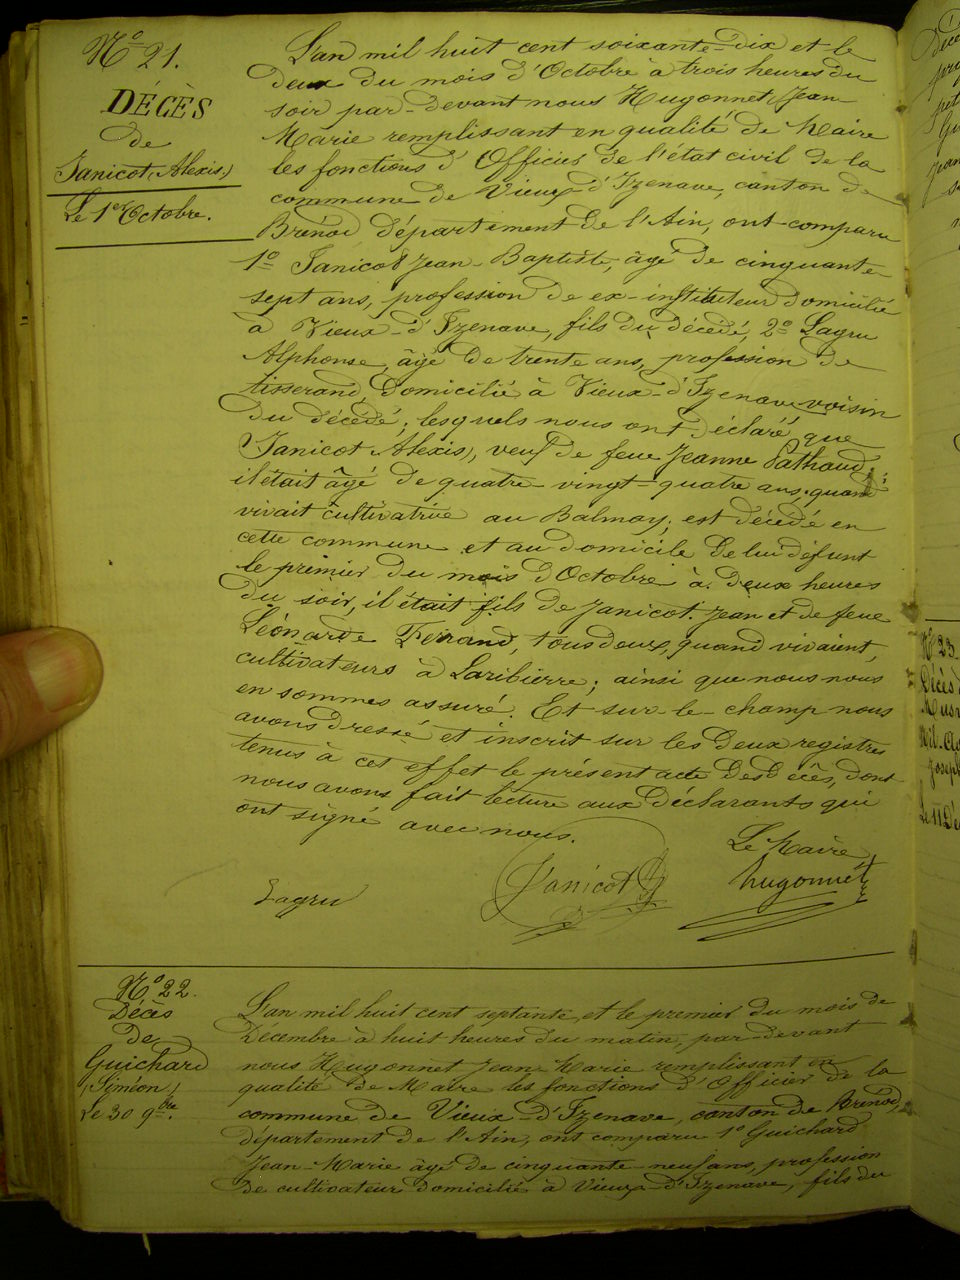 N.o 21.
DÉCÈS
de
Janicot (Alexis)
Le 1er Octobre.
L'an mil huit cent soixante-dix et le
deux du mois d'Octobre à trois heures du
soir par-devant nous Hugonnet Jean-
Marie remplissant en qualité de Maire
les fonctions d'Officier de l'état civil de la
commune de Vieux-d'Izenave, canton de
Brénod département de l'Ain, ont comparu
1.o Janicot Jean-Baptiste, âgé de cinquante-
sept ans, profession de ex-instituteur domicilié
à Vieux-d'Izenave, fils du décédé, 2.o Lagru
Alphonse, âgé de trente ans, profession de
tisserand, domicilié à Vieux-d'Izenave voisin
du décédé; lesquels nous ont déclaré que
Janicot Alexis, veuf de feue Jeanne Pathoud
il était âgé de quatre-vingt-quatre ans, quand
vivait cultivatrice au Balmay, est décédé en
cette commune et au domicile de lui défunt
le premier du mois d'Octobre à deux heures
du soir, il était fils de Janicot Jean et de feue
Léonarde Ferrand, tous deux, quand vivaient,
cultivateurs à Laribierre; ainsi que nous nous
en sommes assuré. Et sur-le-champ nous
avons dressé et inscrit sur les deux registres
tenus à cet effet le présent acte des décès, dont
nous avons fait lecture aux déclarants qui
ont signé avec nous.
Le Maire
Lagru Janicot hugonnet
N.o 22.
Décès
de
Guichard
(Siméon)
Le 30 9bre
L'an mil huit cent septante, et le premier du mois de
Décembre à huit heures du matin, par-devant
nous Hugonnet Jean-Marie remplissant en
qualité de Maire les fonctions d'Officier de la
commune de Vieux-d'Izenave, canton de Brénod,
département de l'Ain, ont comparu 1.o Guichard
Jean-Marie âgé de cinquante-neuf ans, profession
de cultivateur domicilié à Vieux-d'Izenave, fils du
N.o 23
Décès d